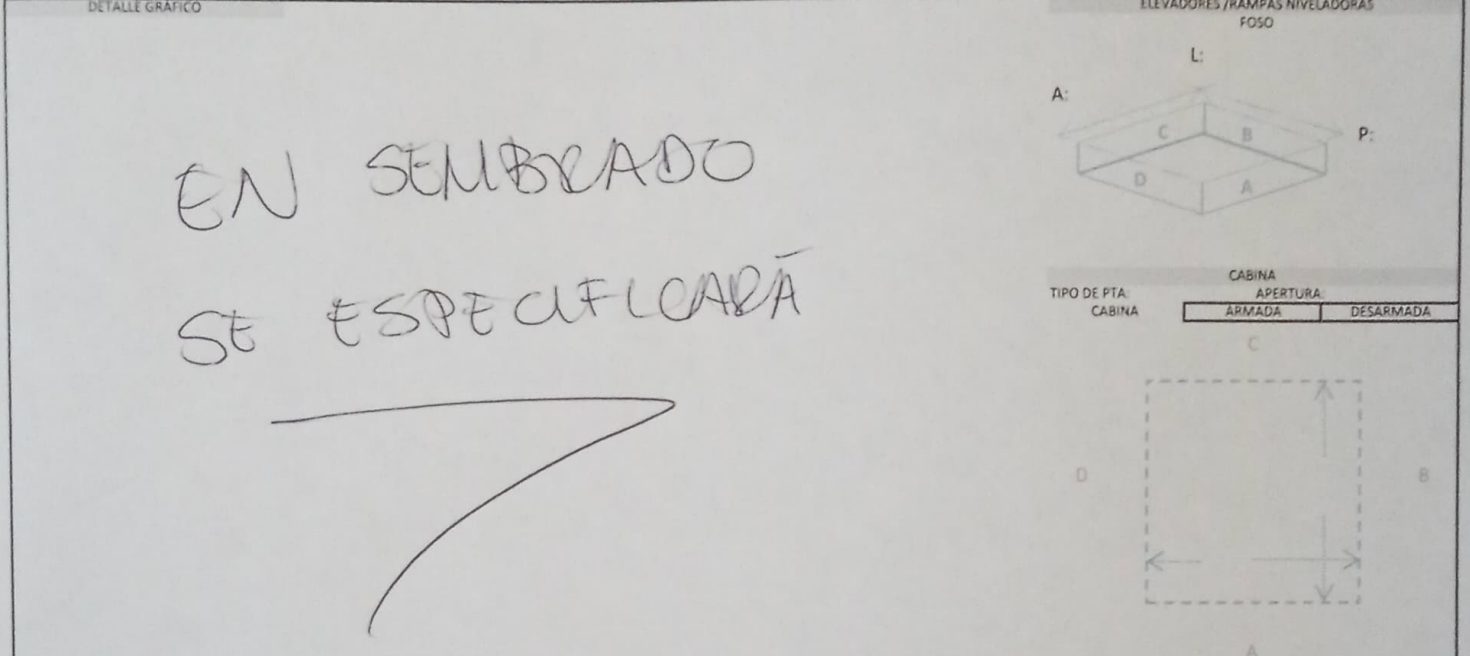 DETALLE GRÁFICO
EN SEMBRADO
SE ESPECIFICARÁ
ELEVADORES /RAMPAS NIVELADORAS
FOSO
L:
A:
P:
C B
D A
CABINA
TIPO DE PTA: APERTURA:
CABINA ARMADA DESARMADA
C
D B
A